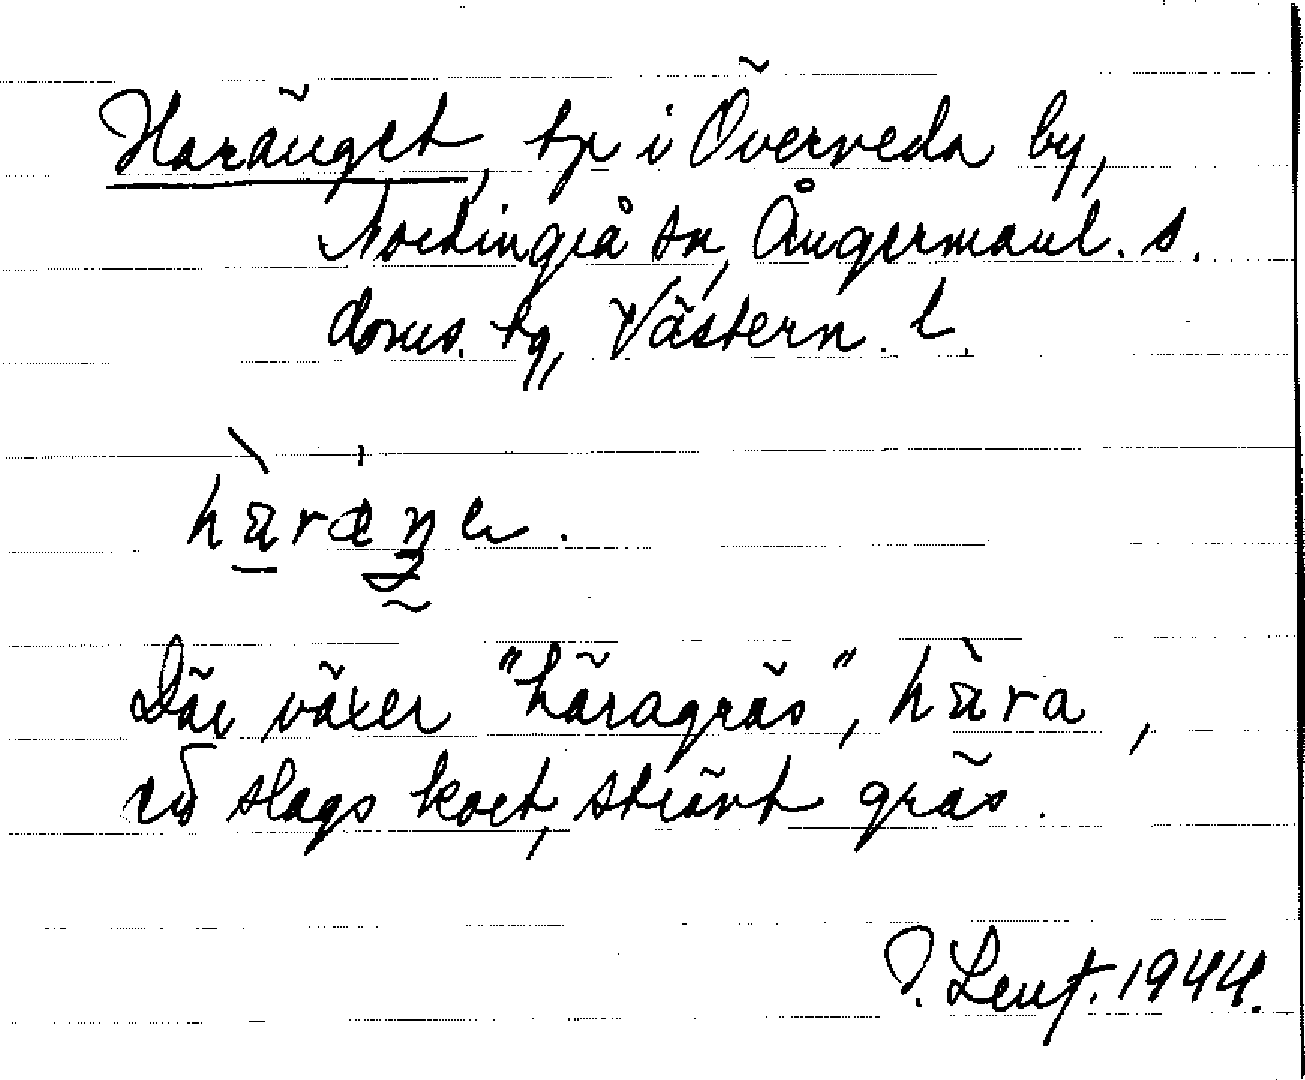 Haränget, tp i Överveda by,
Nordingrå sn, Ångermanl. s.
doms. tg, Västern. l.
Där växer "häragräs", hàra,
ett slags kort, strävt gräs.
1944.